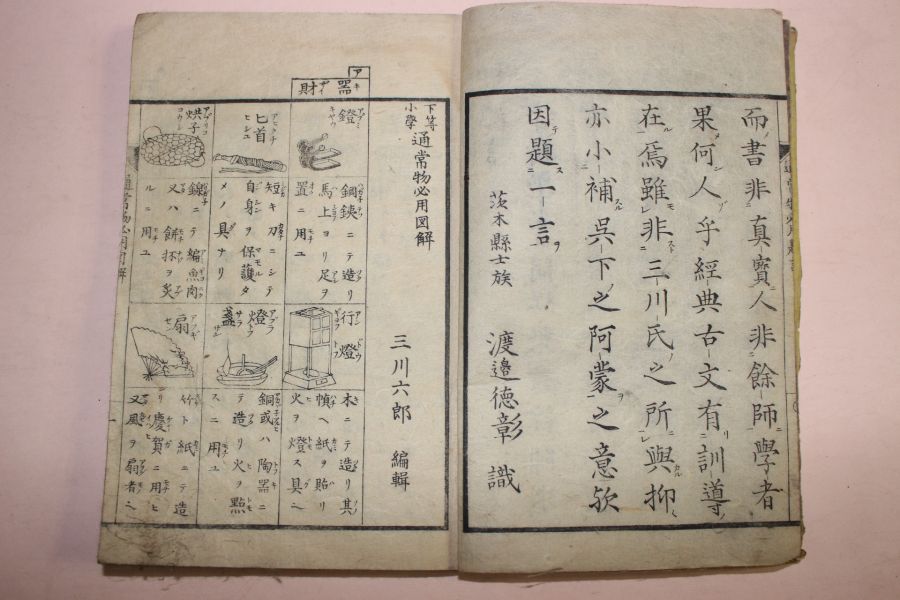 而書非真寶人非餘師學者
果何人乎經典古文有訓導
在焉雖非三川氏之所與抑
亦小補呉下之阿蒙之意欤
因題一言
茨木縣士族 渡邉德彰 識
下等小學 通常物必用図解
三川六郎 編輯
ア
器財
鐙
鋼鉄ニテ造リ
馬上ノ足ヲ
置ニ用ユ
行燈
木ニテ造リ其
幀ヘ紙ヲ貼リ
火ヲ燈ス具ヘ
匕首
短キ刀ニシテ
自身ヲ保護タ
メノ具ナリ
燈盞
銅或ハ陶器ニ
テ造リ火ヲ點
スニ用ユ
烘子
線ニテ編魚肉
又ハ餅抔ヲ炙
ルニ用ユ
扇
竹ト紙ニテ造
リ慶賀ニ用ヒ
又風ヲ扇者ヘ
一